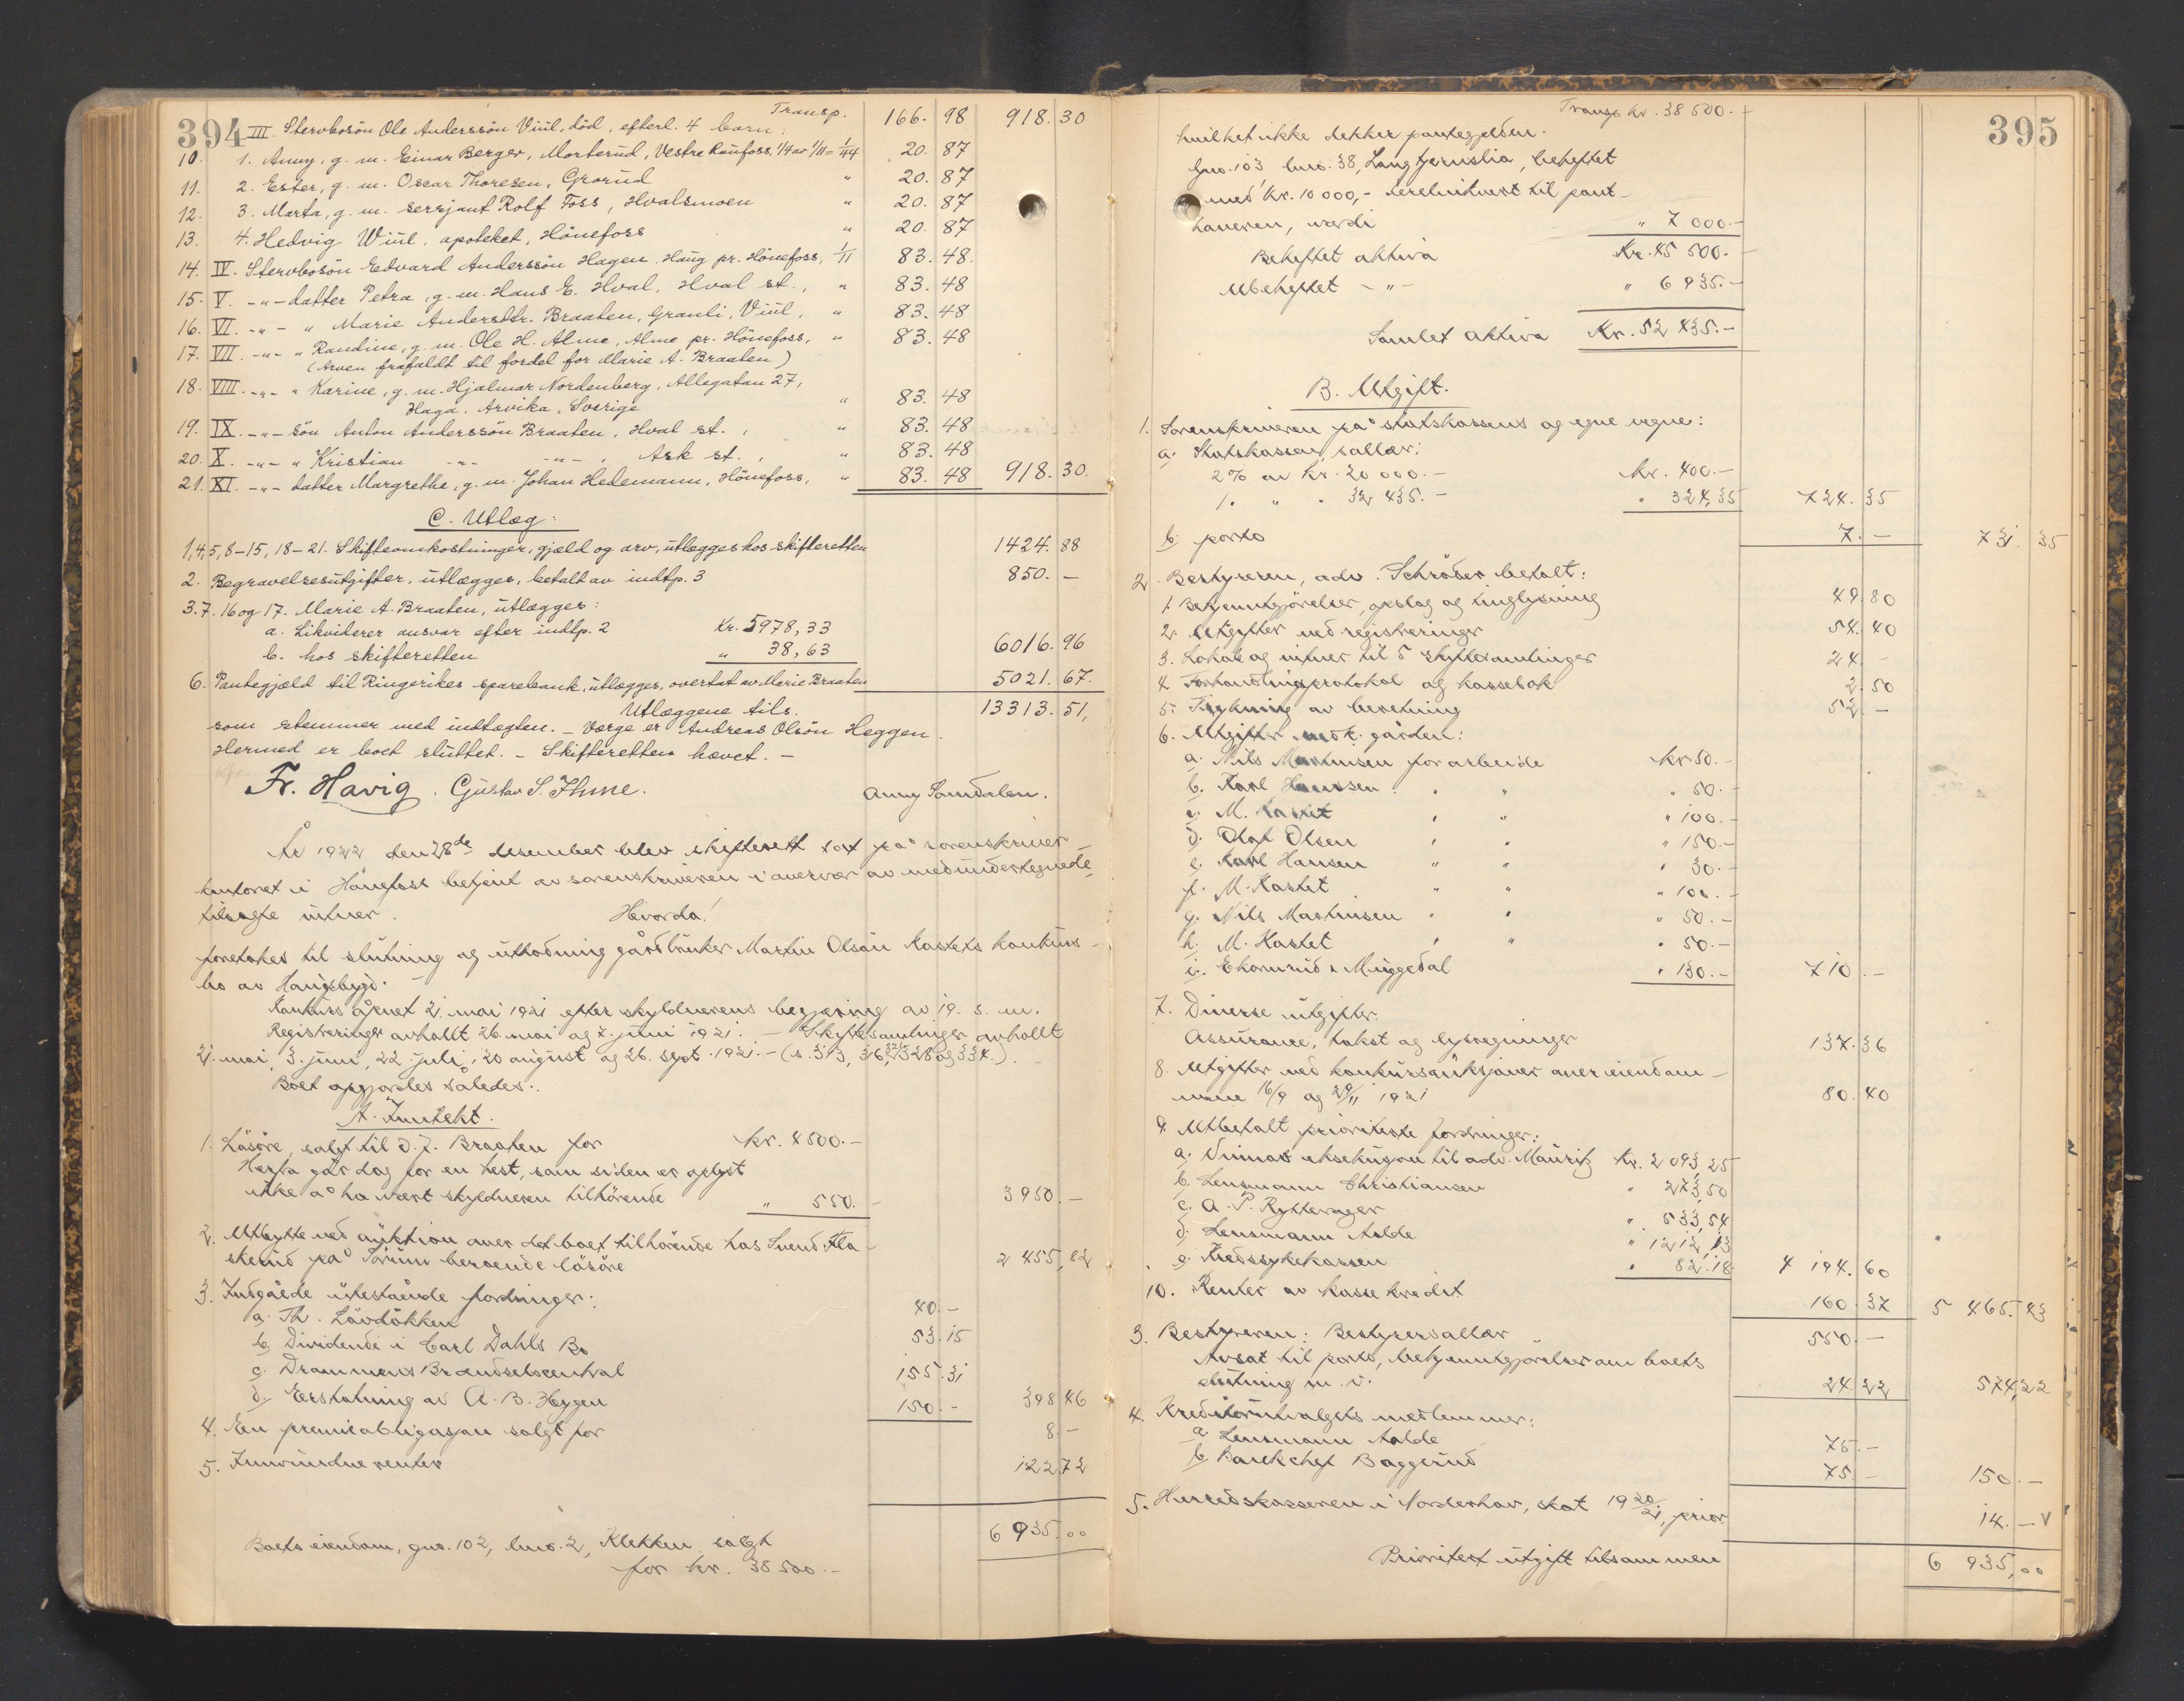 394
Transp. 166. 98 918. 30
III. Stervbosön Ole Anderssön Viul, död, efterl. 4 barn:
10. 1. Anny, g. m. Einar Berger, Morterud, Vestre Raufoss, 1/4 av 1/11 = 1/44 20. 87
11. 2. Ester, g. m. Oscar Thoresen, Grorud " 20. 87
12. 3. Marta, g. m. serrjant Rolf Foss, Hvalsmoen " 20. 87
13. 4. Hedvig Wiul, apoteket, Hönefoss " 20. 87
14. IV. Stervbosön Edvard Anderssön Hagen, Haug pr. Hönefoss, 1/11 83. 48.
15. V. -"- datter Petra, g. m. Hans E. Hval, Hval st., " 83. 48
16. VI. -"- " Marie Andersdtr. Braaten, Granli, Viul, " 83. 48
17. VII. -"- " Randine, g. m. Ole H. Alme, Alme pr. Hönefoss, " 83. 48
(Arven frafaldt til fordel for Marie A. Braaten)
18. VIII. -"- " Karine, g. m. Hjalmar Nordenberg, Allegatan 27,
Haga, Arvika, Sverige " 83. 48
19. IX. -"- sön Anton Anderssön Braaten, Hval st., " 83. 48
20. X. -"- " Kristian -"- -"-, Ask st., " 83. 48
21. XI. -"- datter Margrethe, g. m. Johan Hedemann, Hönefoss, " 83. 48 918. 30.
C. Utlæg:
1,4,5,8-15, 18-21. Skifteomkostninger, gjæld og arv, utlægges hos skifteretten 1424. 88
2. Begravelsesutgifter, utlægges, betalt av indtp. 3 850. —
3. 7. 16 og 17. Marie A. Braaten, utlægges:
a. Likviderer ansvar efter indtp. 2 Kr. 5978,33
b. hos skifteretten " 38,63 6016. 96
6. Pantegjæld til Ringerikes sparebank, utlægges, overtat av Marie Braaten 5021. 67.
Utlæggene tils. 13313. 51,
som stemmer med indtægten. – Værge er Andreas Olsön Heggen.
Hermed er boet sluttet. – Skifteretten hævet. –
Fr. Havig. Gustav S. Thune. Anny Samdalen.
År 1922 den 28de desember blev skifterett satt på sorenskriver-
kontoret i Hönefoss betjent av sorenskriveren i overvær av medundertegnede
tilsagte vitner. Hvorda!
foretokes til slutning og utlodning gårdbruker Martin Olsön Kastets konkurs-
bo av Haugsbygd.
Konkurs åpnet 21. mai 1921 efter skyldnerens begjæring av 19. s. m.
Registreringer avholdt 26. mai og 7. juni 1921. – Skiftesamlinger avholdt
21. mai, 3. juni, 22. juli, 20 august og 26. sept. 1921. – (s. 313, 316, 321, 328 og 334.)
Boet opgjordes således:
A. Inntekt.
1. Lösöre, solgt til O. J. Braaten for kr. 4500. –
Herfra går dog for en hest, som siden er oplyst
ikke å ha vært skyldneren tilhörende " 550. – 3950. –
2. Utbytte ved auktion over det boet tilhörende hos Svend Kla-
sterud på Sörum beroende lösöre 2 455,82
3. Indgåede utestående fordringer:
a. Th. Lövdökken 40. –
b. Dividende i Carl Dahls Bo 53. 15
c. Drammens Brændselscentral 155. 31
d. Erstatning av A. B. Heyen 150. – 398 46
4. En premieobligasjon solgt for 8. –
5. Innvundne renter 122 72
6 935. 00
Boets eiendom, gno. 102, bno. 2, Klekken solgt
for kr. 38 500. –
395
Transp kr. 38 500. –
hvilket ikke dekker pantegjelden.
Gno. 103 bno. 38, Langtjernslia, beheftet
med kr. 10 000,- ekstraditert til pant-
haveren, verdi " 7 000. –
Beheftet aktiva Kr. 45 500. –
Ubeheftet – " – " 6 935. –
Samlet aktiva Kr. 52 435. –
B. Utgift.
1. Sorenskriveren på statskassens og egne vegne:
a. Statskassen, sallær:
2% av kr. 20 000. – kr. 400. –
1 " " " 32 435. – " 324,35 724. 35
b. porto 7. – 731. 35
2. Bestyreren, adv. Schröder betalt:
1. Bekjentgjörelser, opslag og tinglysning 49. 80
2. Utgifter ved registreringer 54. 40
3. Lokale og vitner til 5 skiftesamlinger 24. –
4. Forhandlingsprotokol og kassebok 2. 50
5. Trykning av beretning 52. –
6. Utgifter vedk. gården:
a. Nils Martinsen for arbeide kr. 50. –
b. Karl Hanssen " " " 50. –
c. M. Kastet " " " 100. –
d. Olaf Olsen " " " 150. –
e. Karl Hansen " " " 30. –
f. M. Kastet " " " 100. –
g. Nils Martinsen " " " 50. –
h. M. Kastet " " " 50. –
i. Ekornrud & Muggedal " 130. – 710. –
7. Diverse utgifter.
Assurance, takst og lysregninger 137. 36
8. Utgifter ved konkursauksjoner over eiendom-
mene 16/9 og 29/11 1921 80. 40
9. Utbetalt prioriterte fordringer:
a. Dinnas eksekusjon til adv. Mauritz Kr. 2 093,25
b. Lensmann Christiansen " 273,50
c. A. P. Rytterager " 533,54
d. Lensmann Aalde " 1212,13
e. Kredssykekassen " 82. 18 4 194. 60
10. Renter av kassekredit 160. 37 5 465. 43
3. Bestyreren: Bestyrersallær 550. –
Avsat til porto, bekjentgjörelser om boets
slutning m. v. 24. 22 574,22
4. Kreditorutvalgets medlemmer:
a. Lensmann Aalde 75. –
b. Bankchef Baggerud 75. – 150. –
5. Herredskasseren i Norderhov, skat 1920/21, prior. 14. – v
Prioritert utgift tilsammen 6 935,00